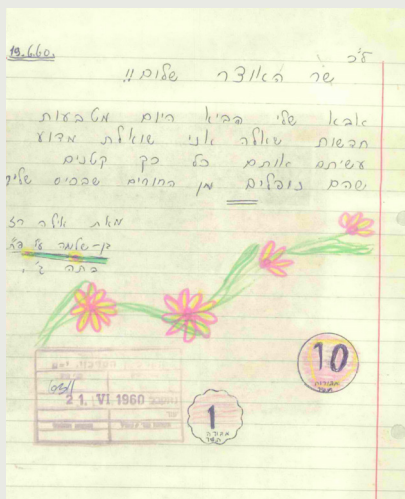 19.6.60.
לכ'
שר האוצר שלום!!
אבא שלי הביא היום מטבעות
חדשות שאלה אני שואלת מדוע
עשיתם אותם כל כך קטנים
שהם נופלים מן החורים שבכיס שלי,
מאת אילה רז
בן-שלמה על
כתה ב'.
10
אגורות
1
אגורה
21. VI 1960